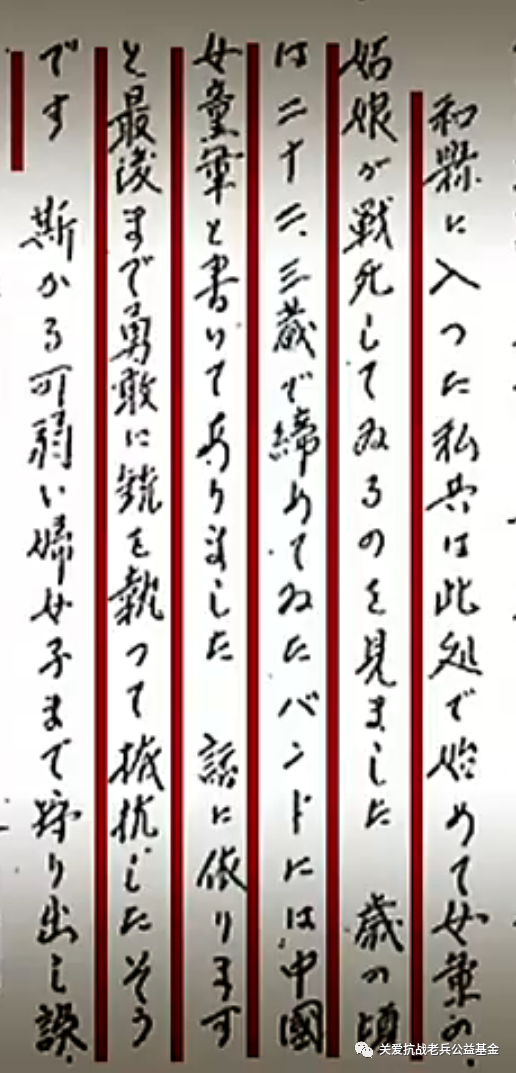 和縣に入つた私共は此処で始めて女兵の
姑娘が戦死してゐるのを見ました 歳の頃
は二十二、三歳で締めてゐたバンドには中國
女童軍と書いてありました 話に依ります
と最後まで勇敢に銃を執つて抵抗したそう
です 斯かる可弱い婦女子まで狩り出し誤
关爱抗战老兵公益基金